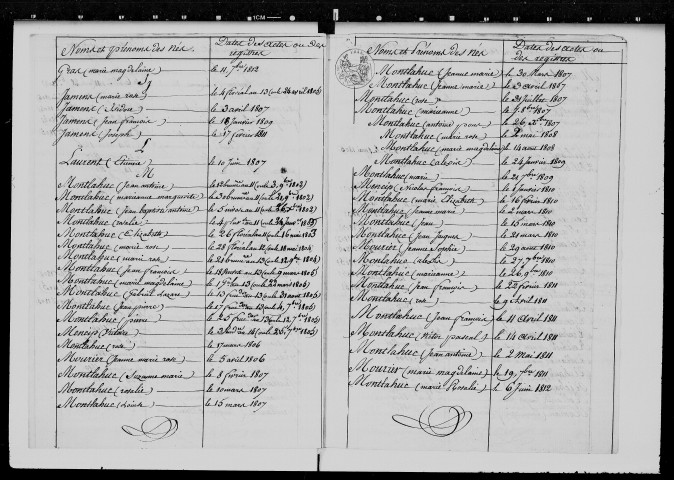 1CM
Noms et prénoms des Nés
Dates des actes ou des registres
(marie magdelaine) le 11 7bre 1812
J
Jamens (marie rose) le 4 floréal an 13 (ou le 24 avril 1805)
Jamens ( le 3 avril 1807
Jamens (jean françois) le 18 janvier 1809
Jamens (Joseph) le 17 février 1811
L
Laurent (Etienne) le 10 juin 1807
M
Montlahuc (jean antoine) le 12 brum. an 11 (ou le 3. 9bre 1802)
Montlahuc (marianne marguerite) le 30 brum. an 11 (ou le 21. 9bre 1802)
Montlahuc (jean baptiste antoine) le 5 nivôse an 11 (ou le 26 Xbre 1802)
Montlahuc (rosalie) le 4 an 11 (ou le 24 1803)
Montlahuc (Elizabeth) le 26 floréal an 11 (ou le 16 mai 1803)
Montlahuc (marie rose) le 28 floréal an 12 (ou le 18 mai 1804)
Montlahuc (marie rose) le 21 brum. an 13 (ou le 12. 9bre 1804)
Montlahuc (jean françois) le 18 an 13 (ou le 9 mars 1805)
Montlahuc (marie magdelaine) le 1er an 13 (ou le 22 mars 1805)
Montlahuc (Gabriel le 13 an 13 (ou le 31 août 1805)
Montlahuc (jean pierre) le 17 an 13 (ou le 4. 7bre 1805)
Montlahuc (pierre) le 25 an 13 (ou le 12. 7bre 1805)
Moncep (Victoire) le 3 an 14 (ou le 25. 7bre 1805)
Montlahuc (rose) le 17 mars 1806
Mourier (jeanne marie rose) le 5 avril 1806
Montlahuc (Suzanne marie) le 8 février 1807
Montlahuc (rosalie) le 10 mars 1807
Montlahuc (Louise) le 15 mars 1807
Noms et Prénoms des Nés
Dates des actes ou des registres
Montlahuc (jeanne marie) le 30 Mars 1807
Montlahuc (jeanne marie) le 3 avril 1807
Montlahuc (rose) le 31 Juillet 1807
Montlahuc (marianne) le 7. 8bre 1807
Montlahuc (antoine pierre) le 26. Xbre 1807
Montlahuc (marie rose) le 2 mai 1808
Montlahuc (marie magdelaine) le 14 août 1808
Montlahuc (alexis) le 24 janvier 1809
Montlahuc (marie) le 21 7bre 1809
Moncep (Nicolas françois) le 6 janvier 1810
Montlahuc (marie Elizabeth) le 16 février 1810
Montlahuc (jeanne marie) le 2 mars 1810
Montlahuc (jean) le 15 mars 1810
Montlahuc (jean jaques) le 21 mars 1810
Mourier (jeanne Sophie) le 29 août 1810
Montlahuc (alexis) le 27. 7bre 1810
Montlahuc (marianne) le 26. 9bre 1810
Montlahuc (jean françois) le 22 février 1811
Montlahuc (rose) le 9 avril 1811
Montlahuc (jean françois) le 11 avril 1811
Montlahuc (victor le 14 avril 1811
Montlahuc (jean antoine) le 2 Mai 1811
Mourier (marie magdelaine) le 19. 7bre 1811
Montlahuc (marie Rosalie) le 6 Juin 1812